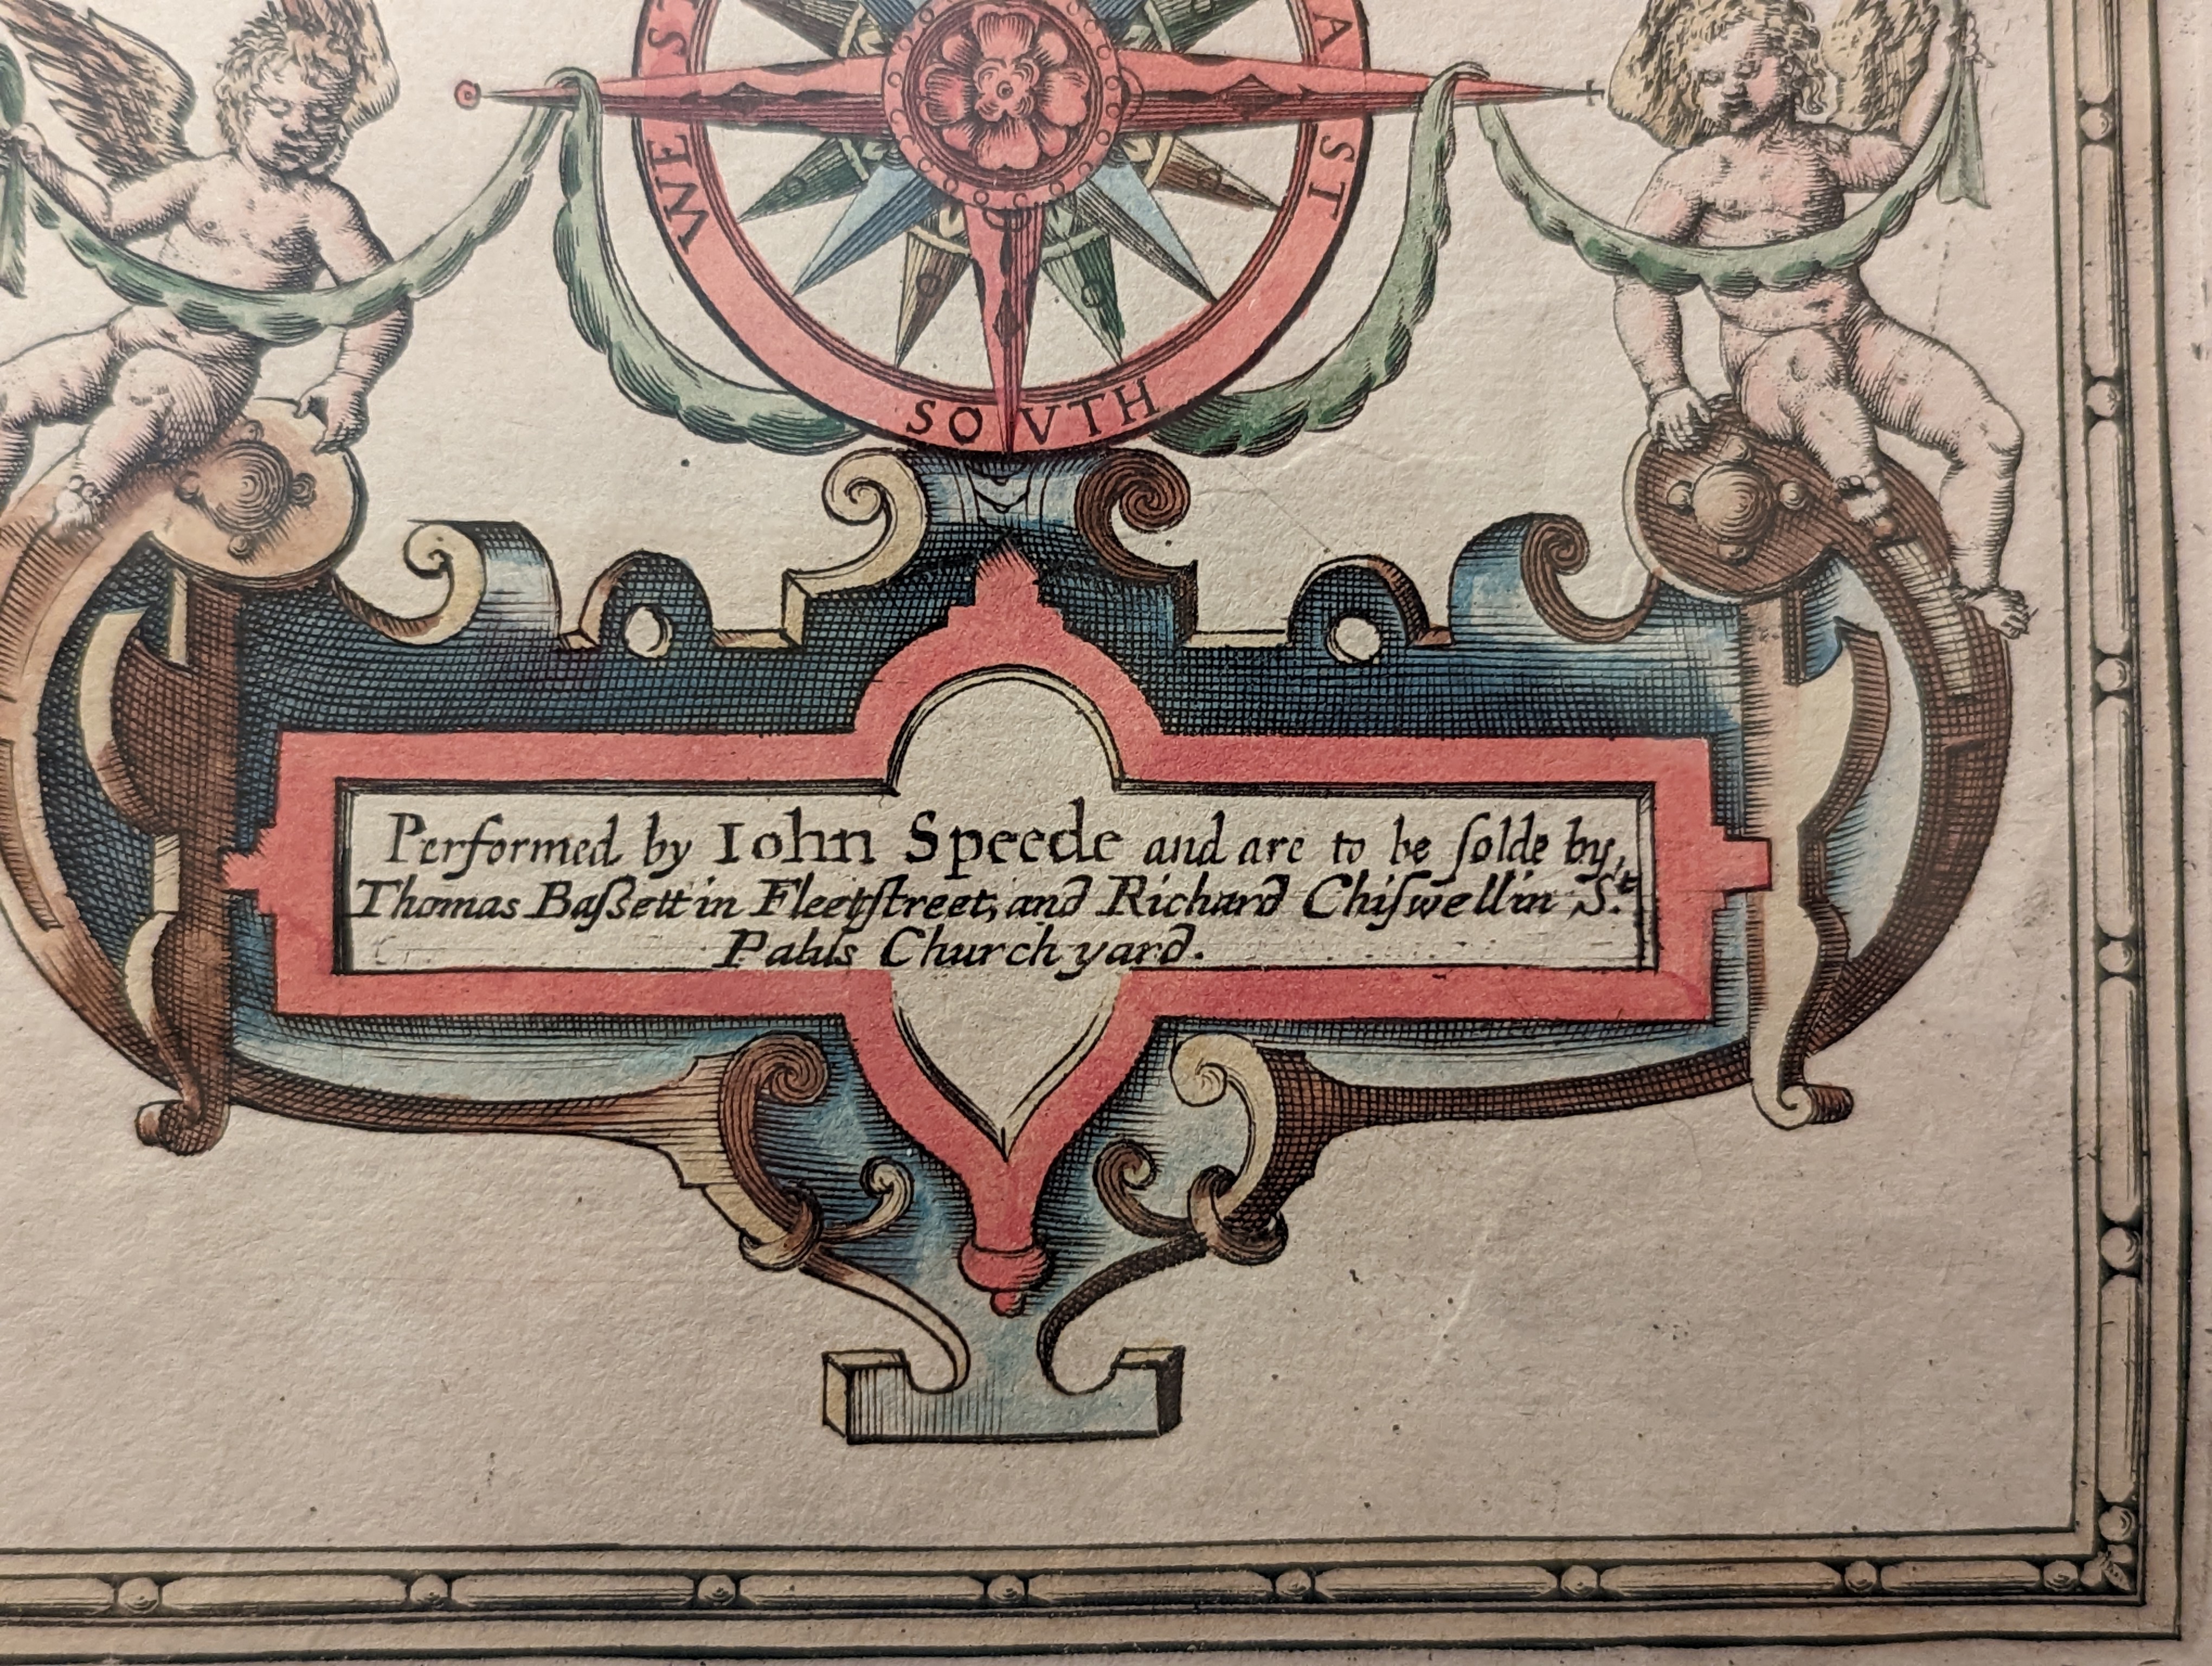 WEST
EAST
SOVTH
Performed by Iohn Speede and are to be ſolde by,
Thomas Baſsett in Fleetſtreet, and Richard Chiſwell in St.
Pauls Church yard.